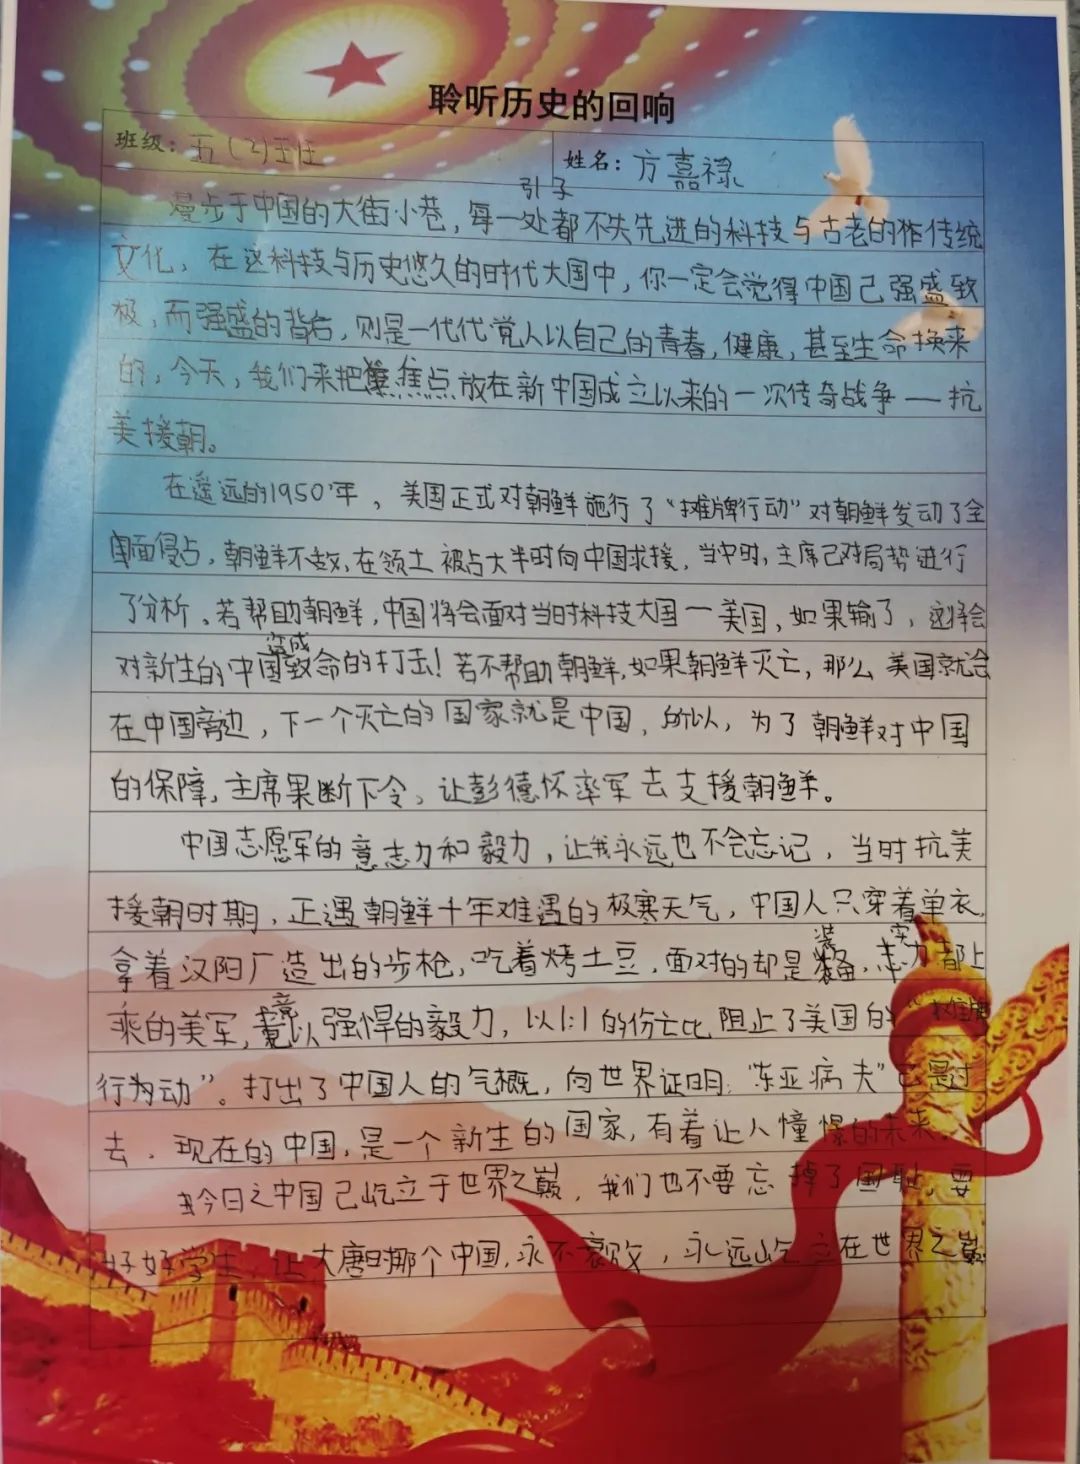 聆听历史的回响
班级：五（2）班 姓名：方嘉禄
引子
漫步于中国的大街小巷，每一处都不失先进的科技与古老的传统
文化，在这科技与历史悠久的时代大国中，你一定会觉得中国己强盛致
极，而强盛的背后，则是一代代党人以自己的青春，健康，甚至生命换来
的，今天，我们来把焦点放在新中国成立以来的一次传奇战争——抗
美援朝。
在遥远的1950年，美国正式对朝鲜施行了“摊牌行动”对朝鲜发动了全
面侵占，朝鲜不敌，在领土被占大半时向中国求援，当中时，主席己对局势进行
了分析。若帮助朝鲜，中国将会面对当时科技大国—美国，如果输了，这将会
对新生的中国造成致命的打击！若不帮助朝鲜，如果朝鲜灭亡，那么美国就会
在中国旁边，下一个灭亡的国家就是中国，所以，为了朝鲜对中国
的保障，主席果断下令，让彭德怀率军去支援朝鲜。
中国志愿军的意志力和毅力，让我永远也不会忘记，当时抗美
援朝时期，正遇朝鲜十年难遇的极寒天气，中国人只穿着单衣，
拿着汉阳厂造出的步枪，吃着烤土豆，面对的却是装备，实力都上
乘的美军，竟以强悍的毅力，以1:1的伤亡比阻止了美国的“摊牌
行动”。打出了中国人的气概，向世界证明：“东亚病夫”已是过
去．现在的中国，是一个新生的国家，有着让人憧憬的未来．
今日之中国己屹立于世界之巅，我们也不要忘掉了国耻，要
好好学生，让大唐时那个中国，永不衰败，永远屹立在世界之巅